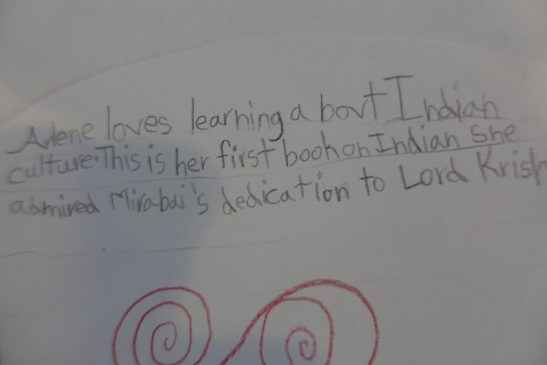 Arlene loves learning a bovt Indian
culture. This is her first book on Indian she
admired Mirabai's dedication to Lord Krish